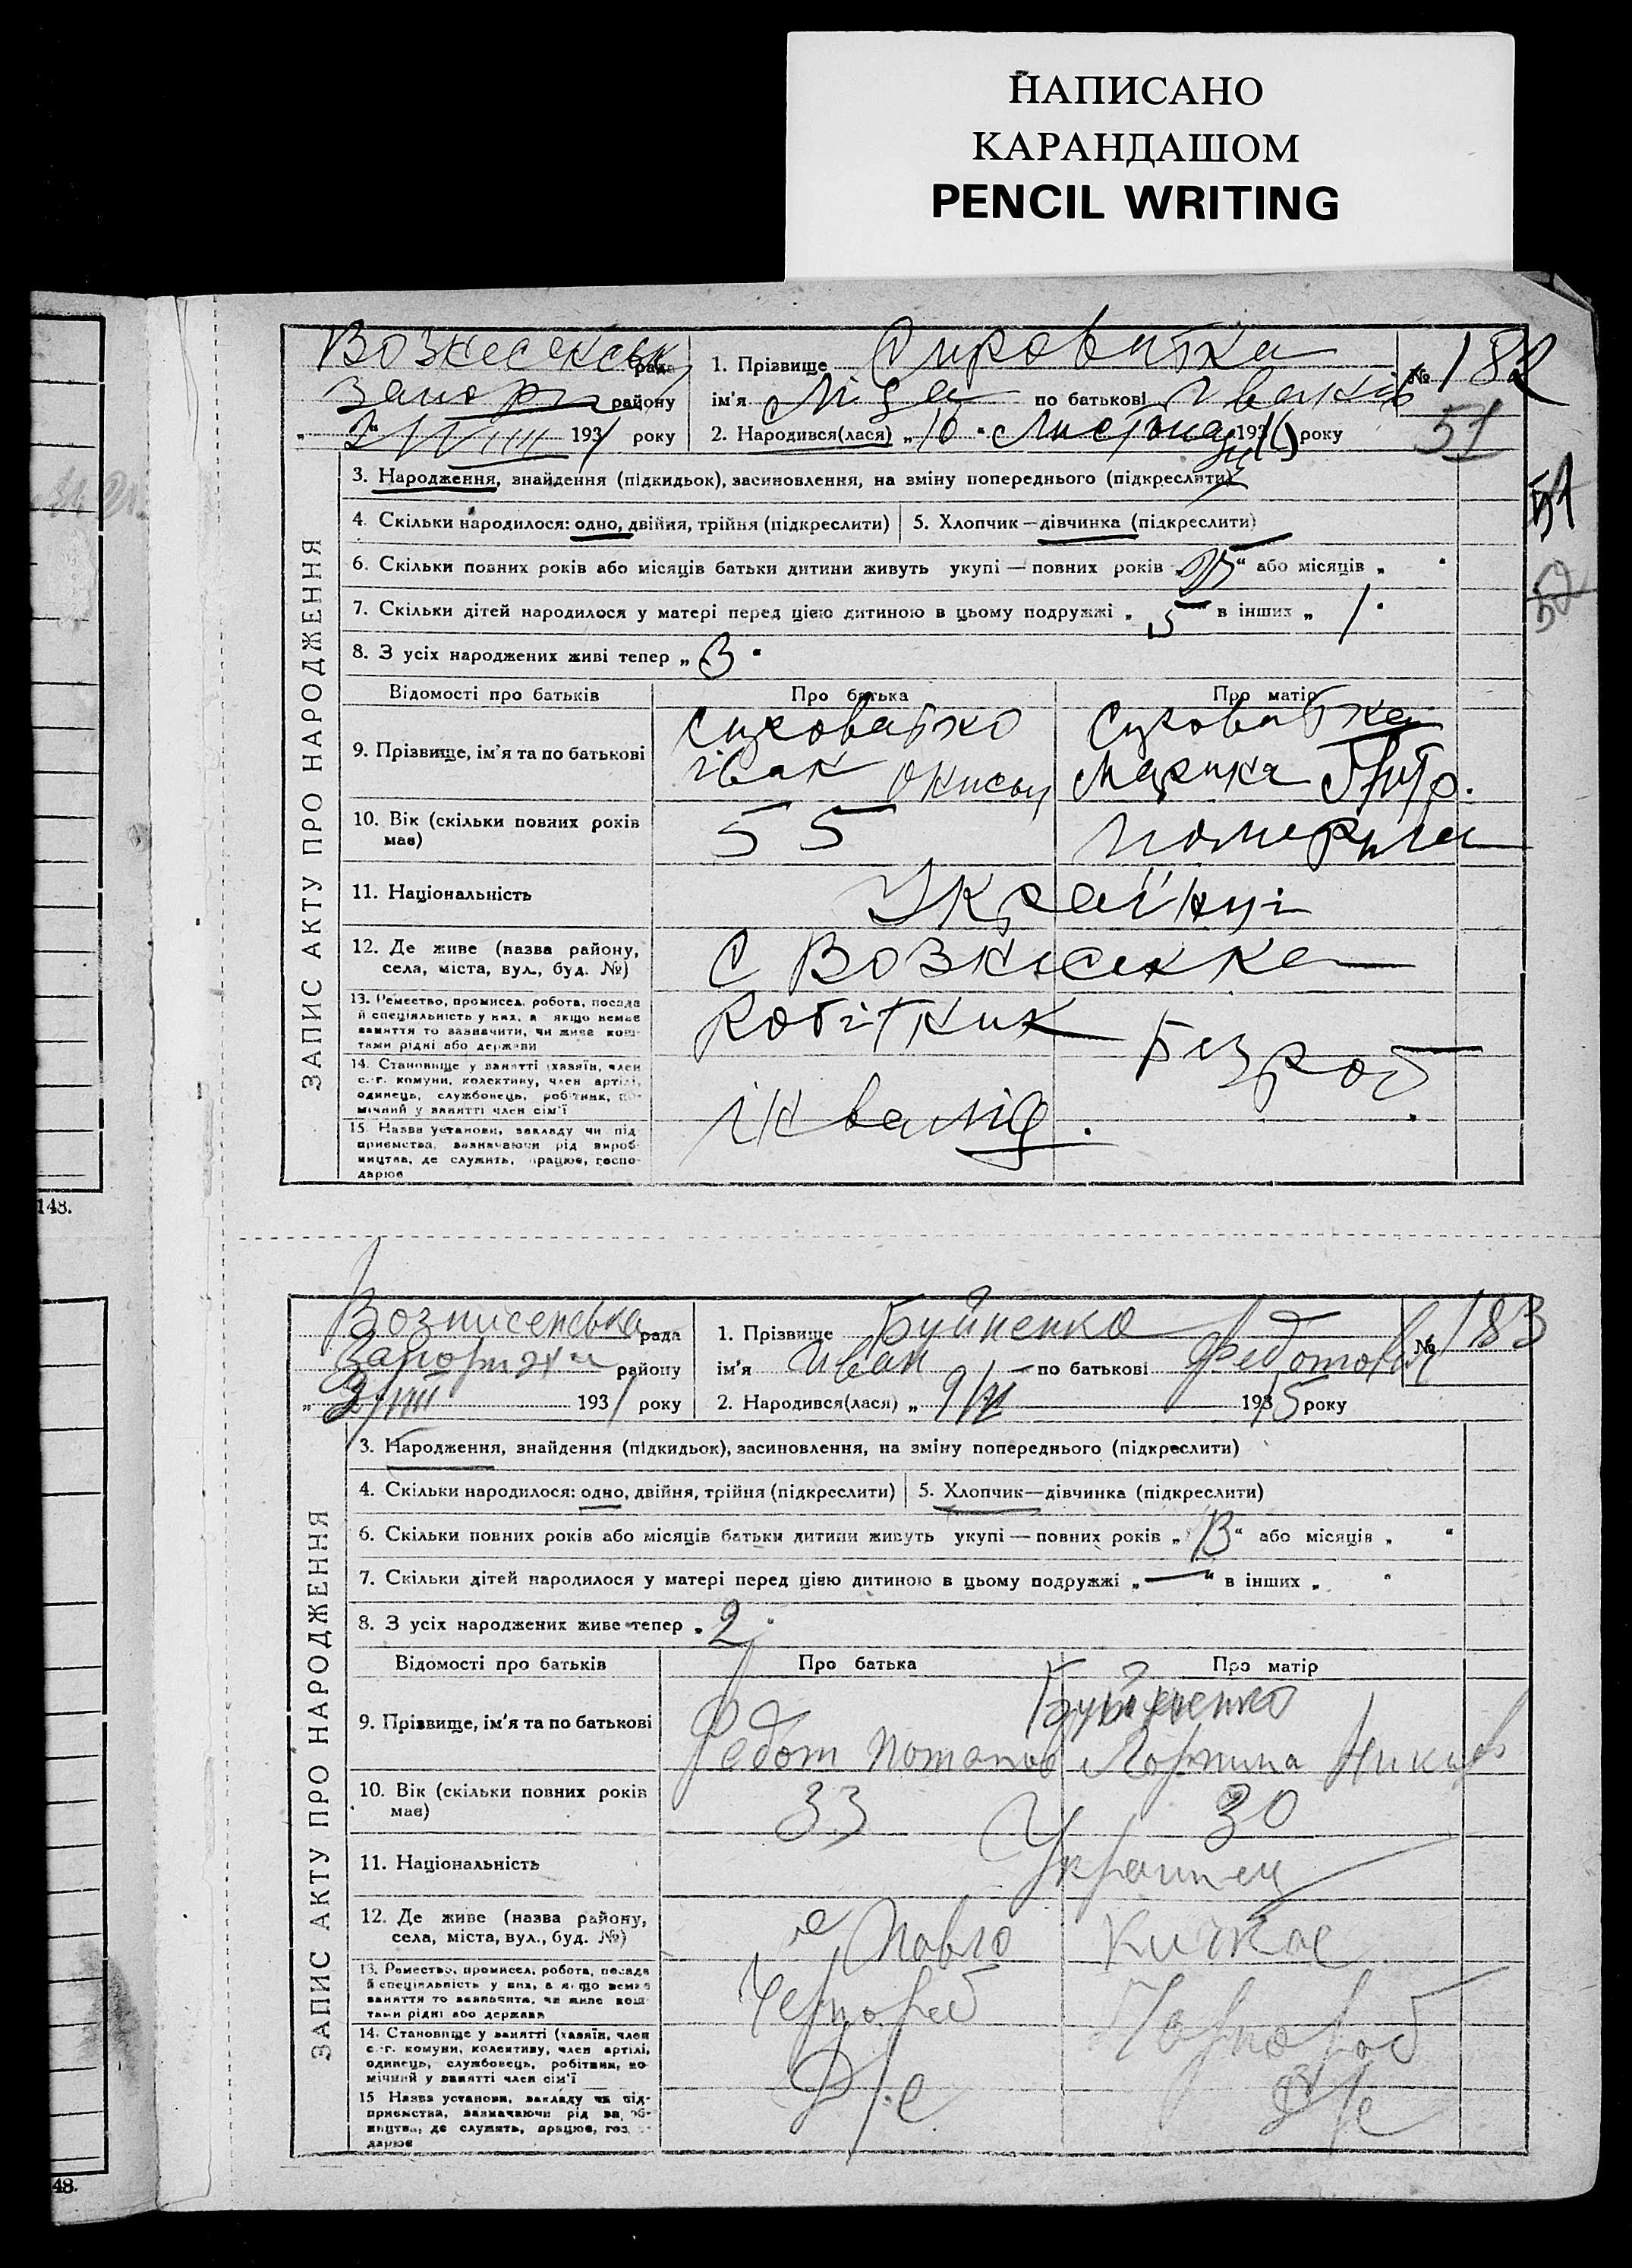 НАПИСАНО
КАРАНДАШОМ
PENCIL WRITING
рада
району
193 1 року
1. Прізвище Сироватка
ім'я Ліда по батькові Іванів
2. Народився(лася) „ 10 " Листопад 191 року
№ 182
51
51
ЗАПИС АКТУ ПРО НАРОДЖЕННЯ
3. Народження, знайдення (підкидьок), засиновлення, на зміну попереднього (підкреслити)
4. Скільки народилося: одно, двійня, трійня (підкреслити)
5. Хлопчик — дівчинка (підкреслити)
6. Скільки повних років або місяців батьки дитини живуть укупі — повних років „ " або місяців „ "
7. Скільки дітей народилося у матері перед цією дитиною в цьому подружжі „ 5 " в інших „ 1 "
8. З усіх народжених живі тепер „ 3 "
Відомості про батьків
Про батька
Про матір
9. Прізвище, ім'я та по батькові
Сироватко
Іван
Сироватка
10. Вік (скільки повних років
має)
55
померла
11. Національність
Українці
12. Де живе (назва району,
села, міста, вул., буд. №)
С Вознесенка
13. Ремество, промисел, робота, посада
й спеціяльність у них, а якщо немає
заняття то зазначити, чи живе кош-
тами рідні або держави
Робітник
Безроб.
14. Становище у занятті (хазяїн, член
с.-г. комуни, колективу, член артілі,
одинець, службовець, робітник, по-
мічний у занятті член сім'ї
Інвалід.
15. Назва установи, закладу чи під-
приємства, зазначаючи рід вироб-
ництва, де служить, працює, госпо-
дарює
148.
Вознисенська рада
Запорижжи району
„ 3/VIII 193 1 року
1. Прізвище Буйненко
ім'я Иван по батькові Федотови
2. Народився(лася) „ 193 року
№ 183
ЗАПИС АКТУ ПРО НАРОДЖЕННЯ
3. Народження, знайдення (підкидьок), засиновлення, на зміну попереднього (підкреслити)
4. Скільки народилося: одно, двійня, трійня (підкреслити)
5. Хлопчик — дівчинка (підкреслити)
6. Скільки повних років або місяців батьки дитини живуть укупі — повних років „ 13 " або місяців „ "
7. Скільки дітей народилося у матері перед цією дитиною в цьому подружжі „ — " в інших „ "
8. З усіх народжених живе тепер „ 2 "
Відомості про батьків
Про батька
Про матір
9. Прізвище, ім'я та по батькові
Буйненко
Федот Потапов
10. Вік (скільки повних років
має)
33
30
11. Національність
Украинец
12. Де живе (назва району,
села, міста, вул., буд. №)
с Павло Кичкас
13. Ремество, промисел, робота, посада
й спеціяльність у них, а якщо немає
заняття то зазначити, чи живе кош-
тами рідні або держави
Чернораб
Чорнороб
14. Становище у занятті (хазяїн, член
с.-г. комуни, колективу, член артілі,
одинець, службовець, робітник, по-
мічний у занятті член сім'ї
15 Назва установи, закладу чи під-
приємства, зазначаючи рід вироб-
ництва, де служить, працює, госпо-
дарює
48.